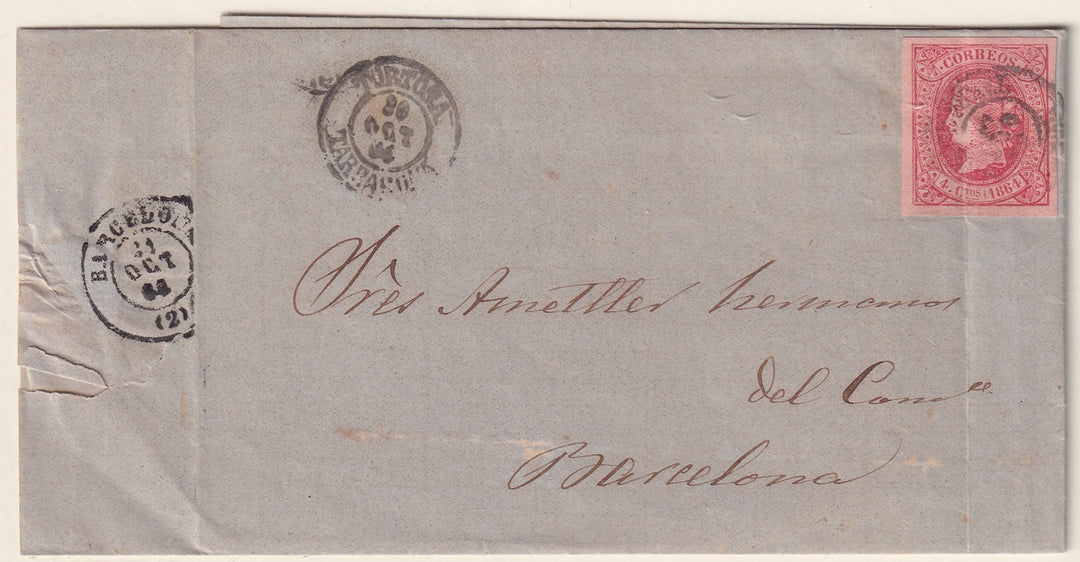 TORTOSA
30
OCT
64
TARRAGONA
CORREOS
4. CTOS. 1864
BARCELON
31
OCT
64
(2)
Srès Ametller hermanos
del Comce
Barcelona